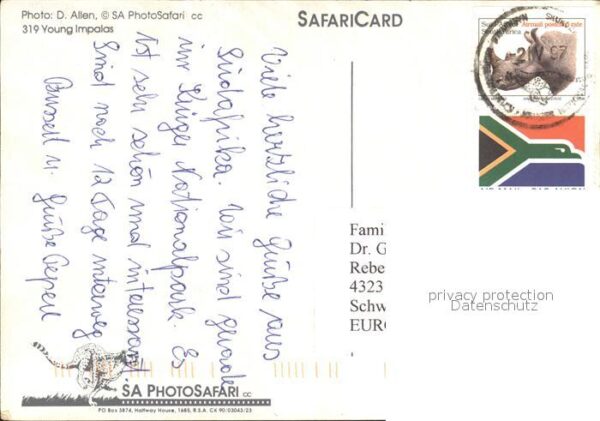 Photo: D. Allen, © SA PhotoSafari cc
319 Young Impalas
SAFARICARD
South Africa Airmail postcard rate
Viele herzliche Grüße aus
Südafrika. Wir sind gerade
im Krüger Nationalpark. Es
ist sehr schön und interessant
Sind noch 12 Tage unterweg
Bussell u. Grüße
Fami
Dr. G
Rebe
4323
Schw
EURO
privacy protection
Datenschutz
SA PHOTOSAFARI cc
PO Box 3874, Halfway House, 1685, R.S.A. CK 90/03043/23